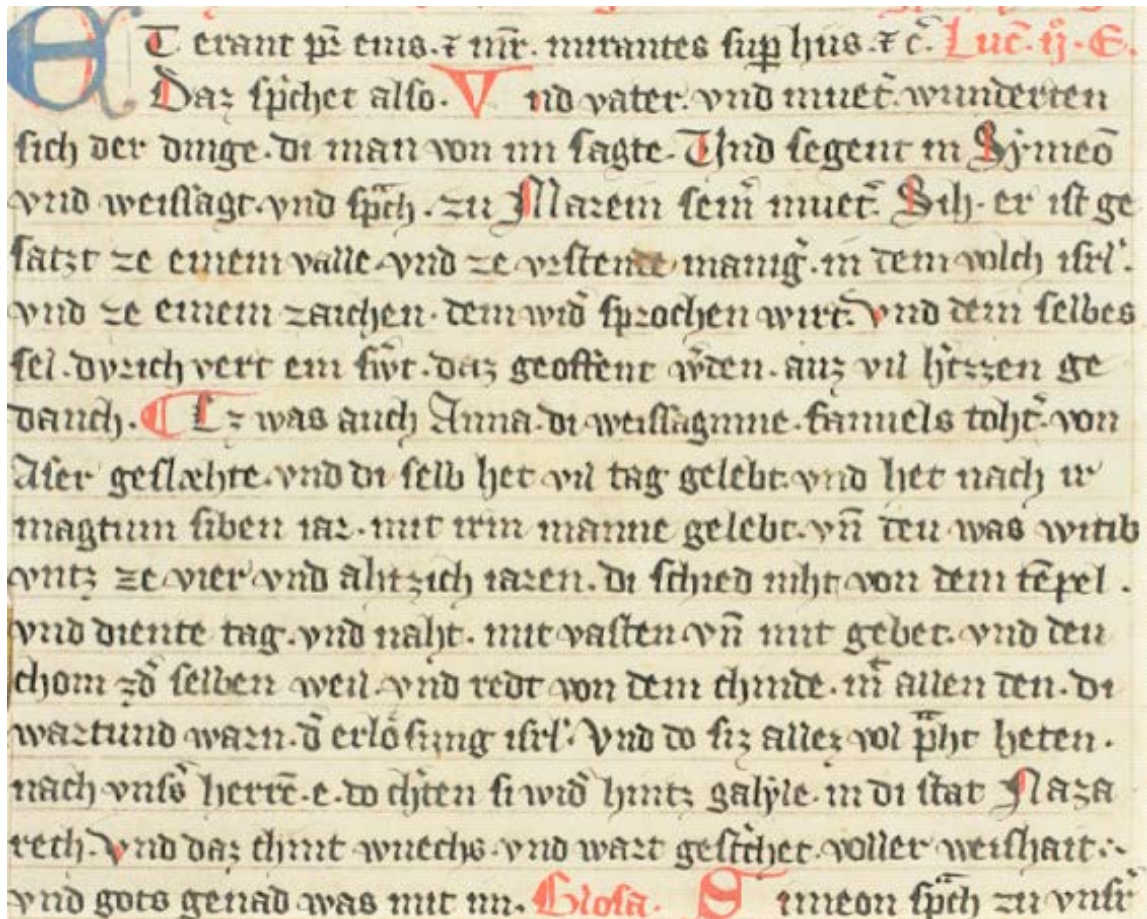 ET erant pr̄ eius. ⁊ mr̄. mirantes sup hiis. ⁊ c̄. Luc̄. ij. E.
Daz sp̾chet also. Vnd vater. vnd muet̾. wunderten
sich der dinge. di man von im sagte. Und segent in Sẏmeō
vnd weissagt. vnd spᵃch. zu Marein sein̾ muet̾. Sih. er ist ge
satzt ze einem valle. vnd ze vrstende manig̾. in dem volch isrl̾.
vnd ze einem zaichen. dem wid̾ sprochen wirt. vnd dem selbes
sel. dvrich vert ein sw̾t. daz geoffent w̾den. auz vil h̾tzzen ge
danch. Ez was auch Anna. di weissaginne. fanuels toht̾. von
Aser geslæhte. vnd di selb het vil tag gelebt. vnd het nach ir
magtum siben iar. mit irm manne gelebt. vn̄ deu was witib
vntz ze vier vnd ahtzich iaren. di schied niht von dem tēpel.
vnd diente tag. vnd naht. mit vasten vn̄ mit gebet. vnd deu
chom zd̾ selben weil. vnd redt von dem chinde. mᵗ allen den. di
wartund warn. d̾ erlosung isrl̾. Vnd do siz allez vol pᵃht heten.
nach vns̾s herrē. e. do ch̾ten si wid̾ hintz galẏle. in di stat Naza
reth. Vnd daz chint wuechs. vnd wart gest̾chet. voller weishait.
vnd gots genad was mit im. Glosa. Simeon spᵃch zu vnsr̾